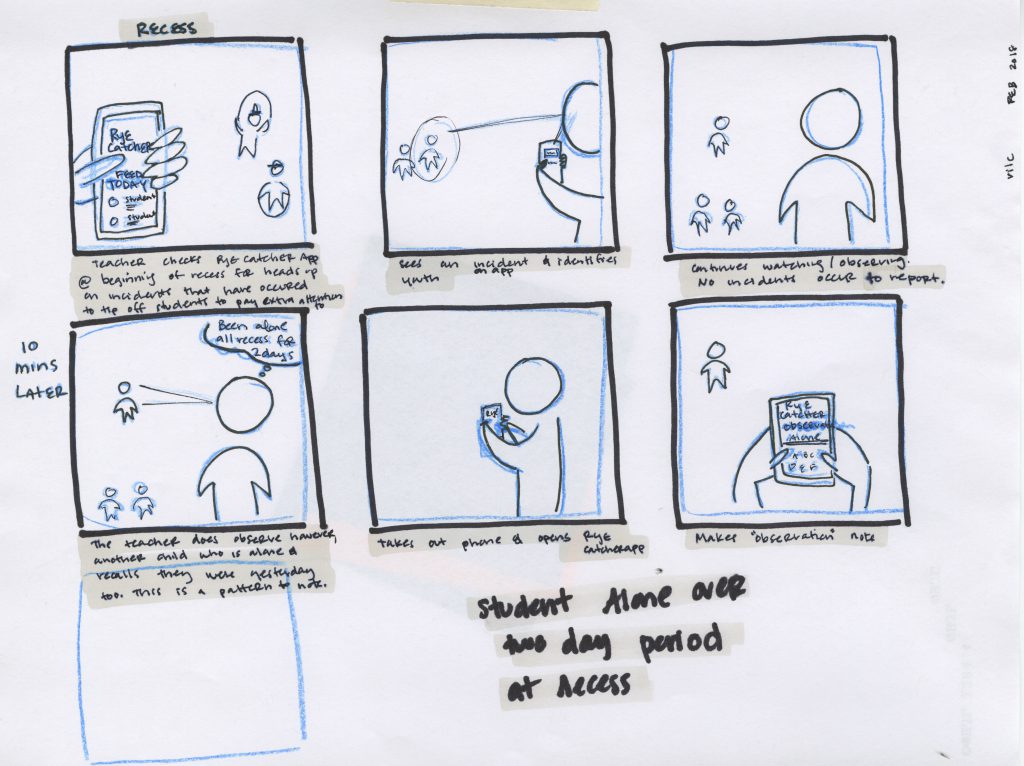 RECESS
RYE
CATCHER
FEED
TODAY
student
student
Teacher checks Rye Catcher App
@ beginning of recess for heads up
on incidents that have occured
to tip off students to pay extra attention
to
Sees an incident & identifies
youth on app
continues watching/observing.
No incidents occur to report.
FEB 2018
10
mins
Later
Been alone
all recess for
2 days
The teacher does observe however,
another child who is alone &
recalls they were yesterday
too. This is a pattern to note.
RYE
takes out phone & opens Rye
catcher app
RYE
CATCHER
observat
Alone
A B C
D E F
Makes "observation" note
Student Alone over
two day period
at recess